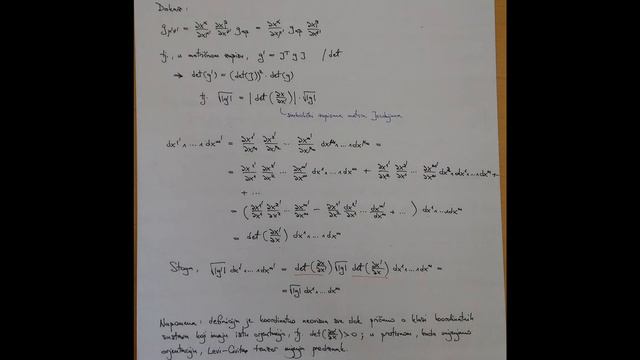 Dokaz:
g_{μ'ν'} = ∂x^α/∂x^{μ'} ∂x^β/∂x^{ν'} g_{αβ} = ∂x^α/∂x^{μ'} g_{αβ} ∂x^β/∂x^{ν'}
tj., u matričnom zapisu, g' = J^T g J / det
→ det(g') = (det(J))² · det(g)
tj. √|g'| = |det(∂x/∂x')| · √|g|
simbolički zapisana matrica Jacobijana
dx^{1'} ∧ ... ∧ dx^{m'} = ∂x^{1'}/∂x^{μ₁} ∂x^{2'}/∂x^{μ₂} ... ∂x^{m'}/∂x^{μₘ} dx^{μ₁} ∧ ... ∧ dx^{μₘ} =
= ∂x^{1'}/∂x^1 ∂x^{2'}/∂x^2 ... ∂x^{m'}/∂x^m dx^1 ∧ ... ∧ dx^m + ∂x^{1'}/∂x^2 ∂x^{2'}/∂x^1 ... ∂x^{m'}/∂x^m dx^2 ∧ dx^1 ∧ ... ∧ dx^m +
+ ...
= (∂x^{1'}/∂x^1 ∂x^{2'}/∂x^2 ... ∂x^{m'}/∂x^m − ∂x^{1'}/∂x^2 ∂x^{2'}/∂x^1 ... ∂x^{m'}/∂x^m + ...) dx^1 ∧ ... ∧ dx^m
= det(∂x'/∂x) dx^1 ∧ ... ∧ dx^m
Stoga, √|g'| dx^{1'} ∧ ... ∧ dx^{m'} = det(∂x/∂x') √|g| det(∂x'/∂x) dx^1 ∧ ... ∧ dx^m =
= √|g| dx^1 ∧ ... ∧ dx^m
Napomena: definicija je koordinatno neovisna sve dok pričamo o klasi koordinatnih
sustava koji imaju istu orjentaciju, tj. det(∂x/∂x') > 0; u protivnom, kada mijenjamo
orjentaciju, Levi-Civita tenzor mijenja predznak.